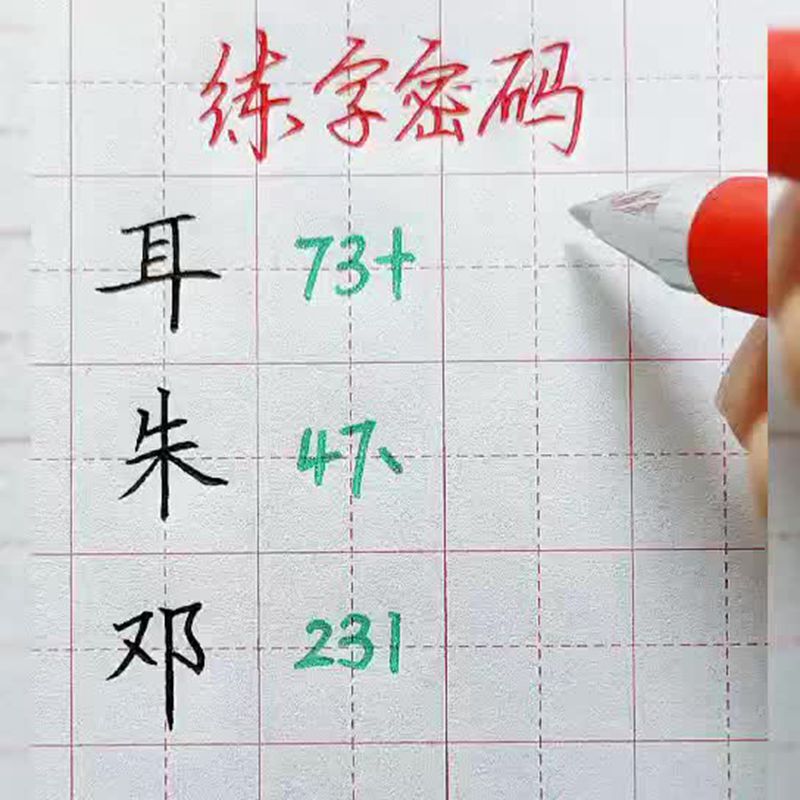 练字密码
耳 73十
朱 47、
邓 231